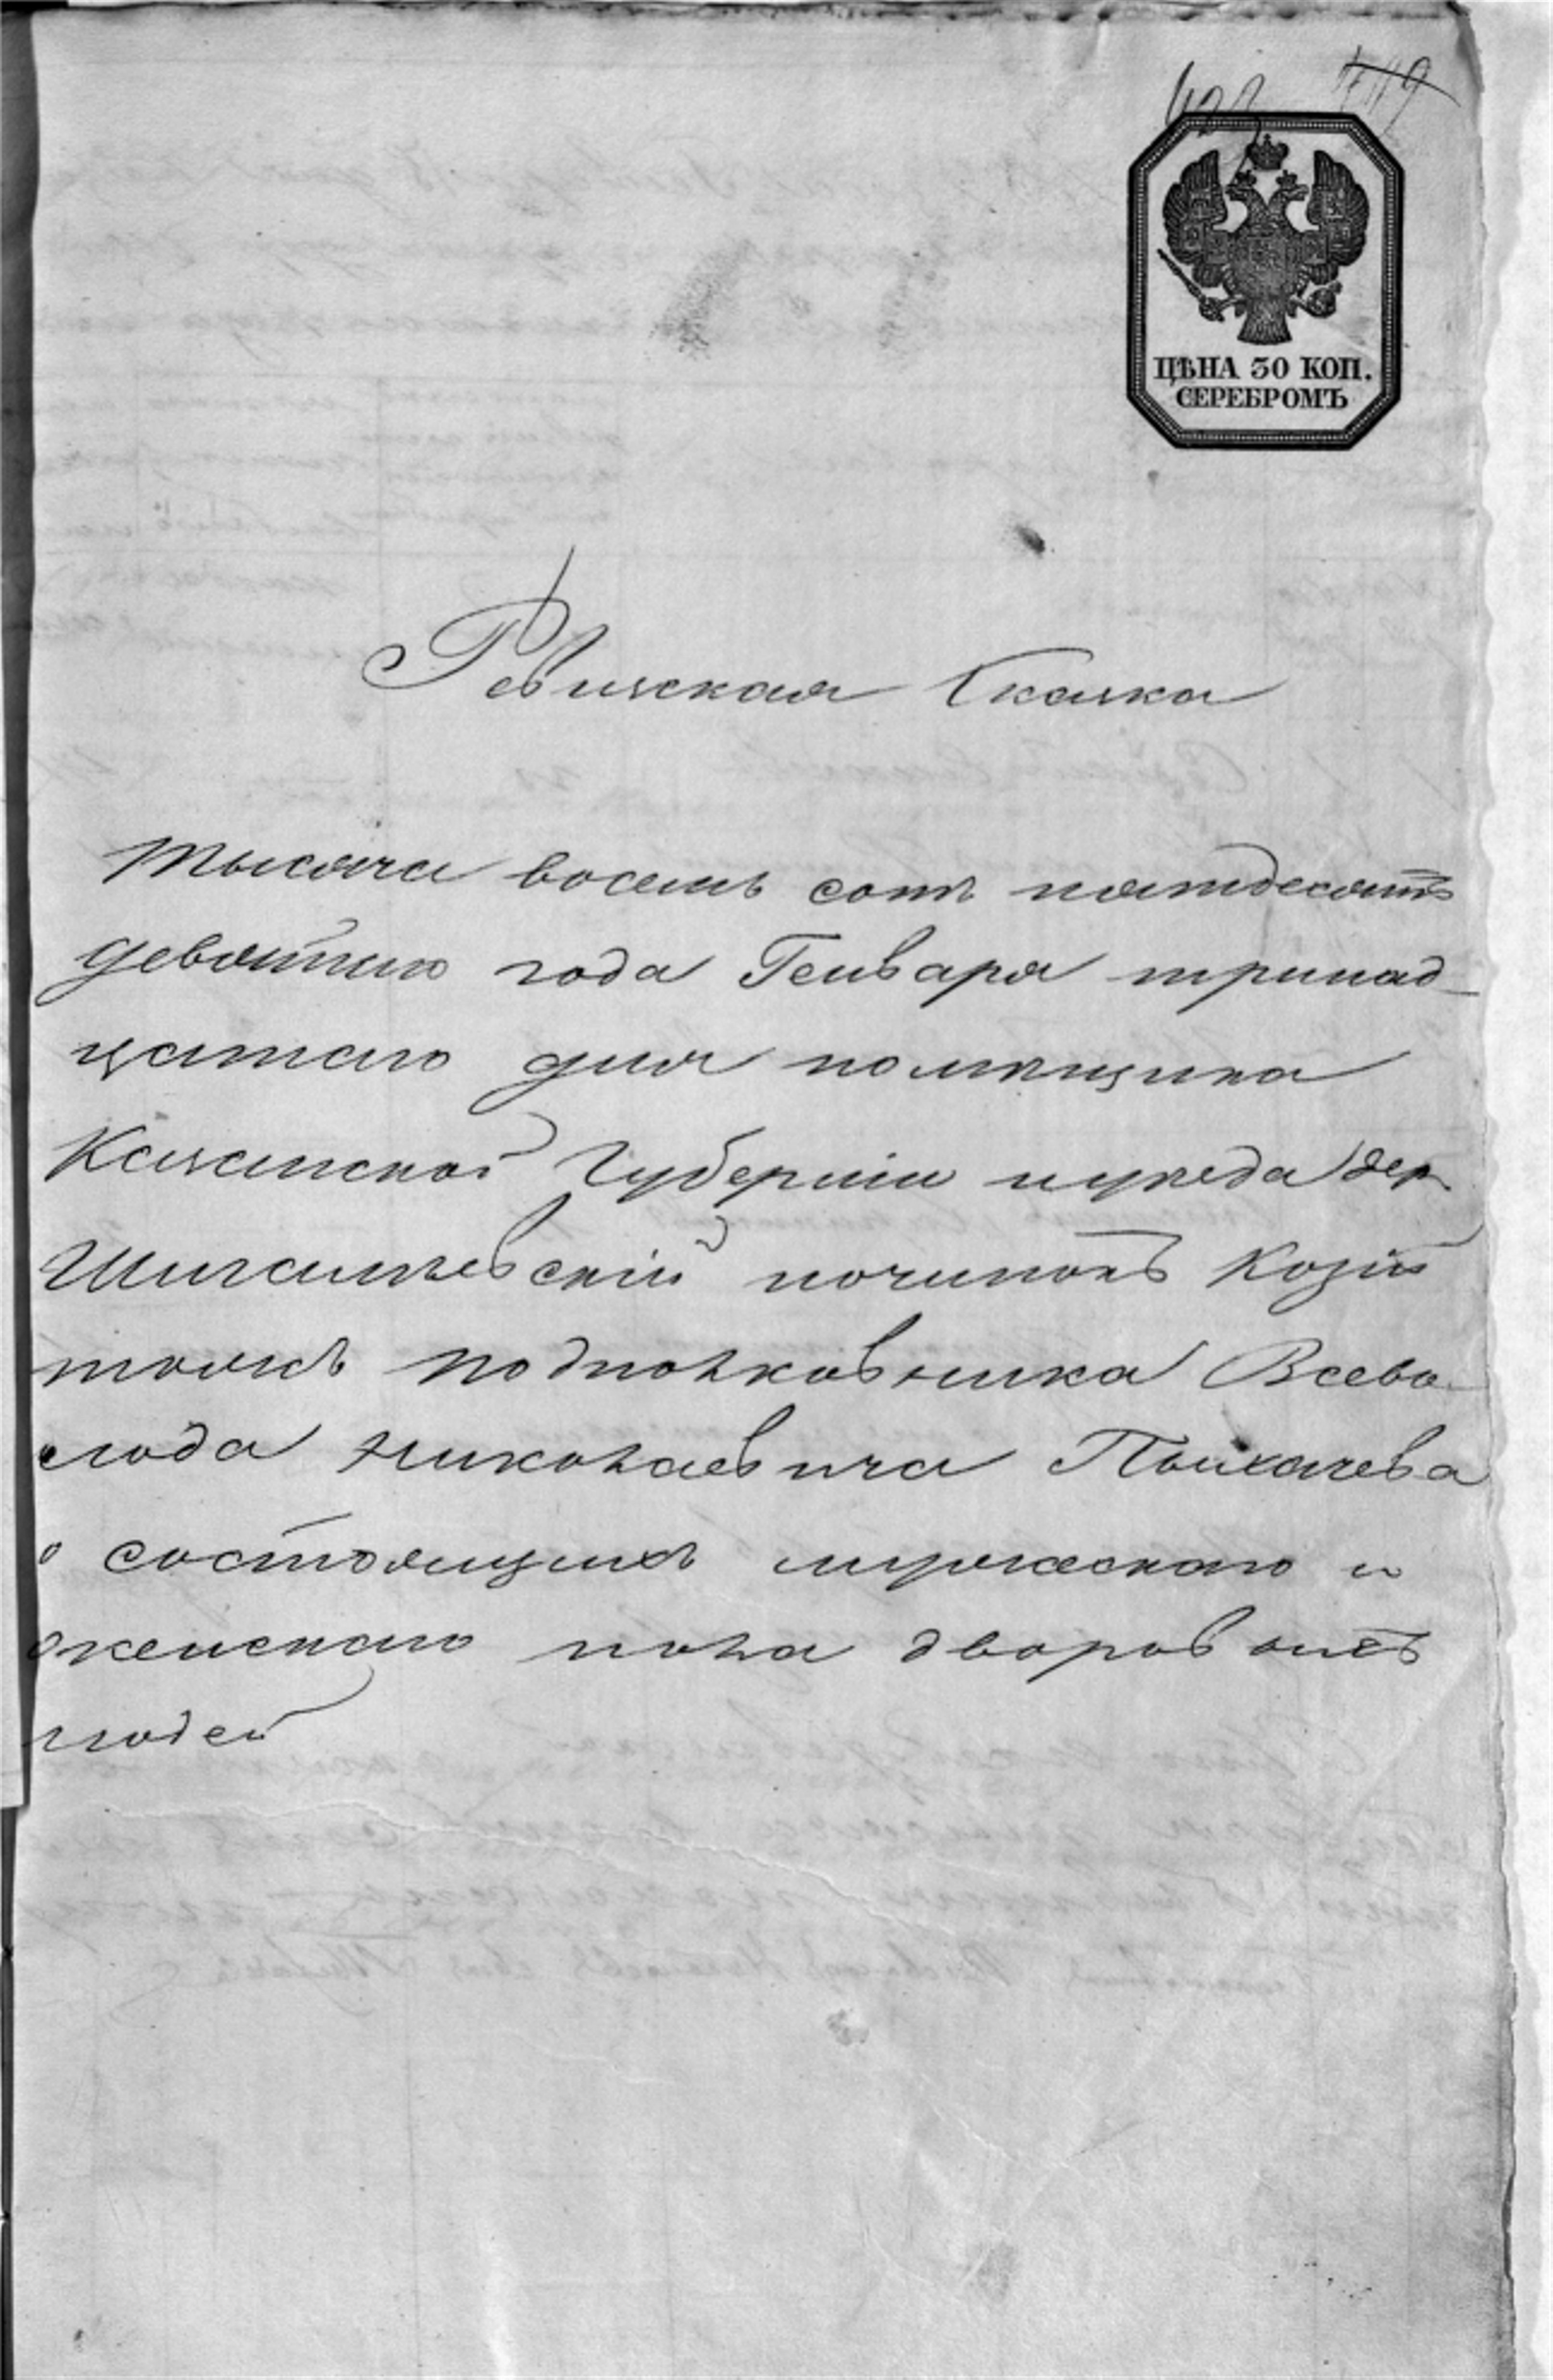 ЦѢНА 30 КОП.
СЕРЕБРОМЪ
Ревизская Сказка
Тысяча восемь сотъ пятдесятъ
девятаго года Генваря тринад-
цатаго дня помѣщика
Казанской Губерніи и уѣзда дер.
Шигалѣевскій починокъ Козій
тожъ подполковника Всево-
лода Николаевича
о состоящихъ мужескаго и
женскаго пола дворовыхъ
людей